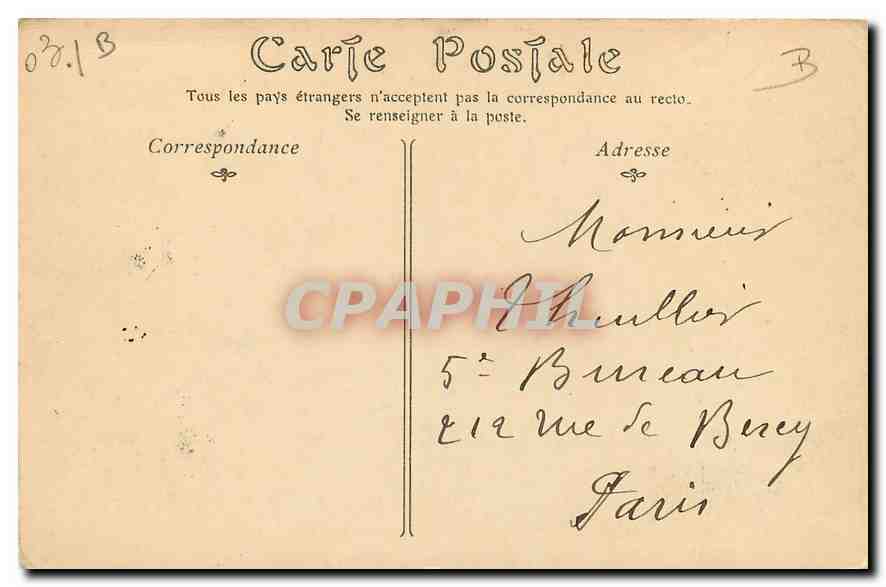 03.1 B
B
Carte Postale
Tous les pays étrangers n'acceptent pas la correspondance au recto.
Se renseigner à la poste.
Correspondance
Adresse
CPAPHIL
Monsieur
Thuillier
5e Bureau
212 rue de Bercy
Paris